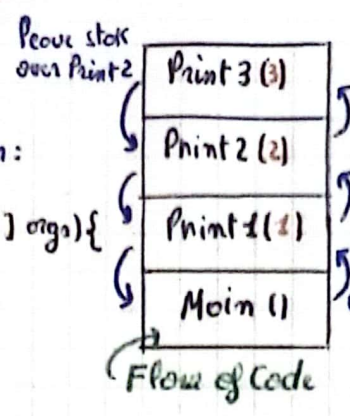 Peove stok
over Print2
Print 3 (3)
n:
Print 2 (2)
] args){
Print 1 (1)
Main ()
Flow of Code